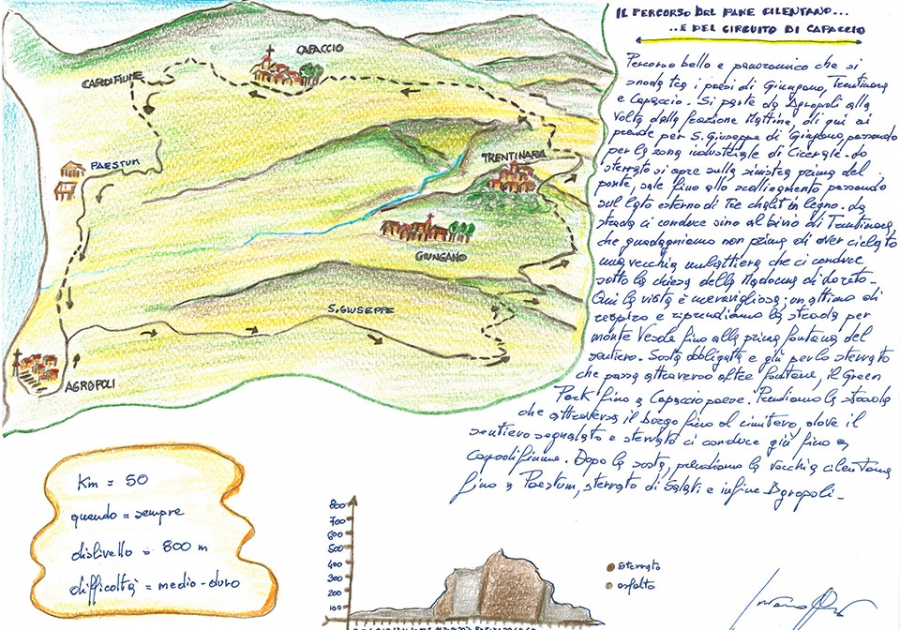 IL PERCORSO DEL PANE CILENTANO...
..E DEL CIRCUITO DI CAPACCIO
Percorso bello e panoramico che si
snoda tra i paesi di Giungano, Trentinara
e Capaccio. Si parte da Agropoli alla
volta della frazione Mattine, di qui si
prende per S. Giuseppe di Giungano passando
per la zona industriale di Cicerale. Lo
sterrato si apre sulla sinistra prima del
ponte, sale fino allo scollinamento passando
sul lato esterno di tre chalet in legno. La
strada ci conduce sino al bivio di Trentinara,
che guadagniamo non prima di aver ciclato
una vecchia mulattiera che ci conduce
sotto la chiesa della Madonna di Loreto.
Qui la vista è meravigliosa; un attimo di
respiro e riprendiamo la strada per
monte Vesole fino alla prima fontana del
sentiero. Sosta obbligata e giù per lo sterrato
che passa attraverso altre fontane, il Green
Park fino a Capaccio paese. Prendiamo la strada
che attraversa il borgo fino al cimitero, dove il
sentiero segnalato e sterrato ci conduce giù fino a
Capodifiume. Dopo la sosta, prendiamo la vecchia cilentana
fino a Paestum, sterrato di Salati e infine Agropoli.
CAPACCIO
CAPODIFIUME
PAESTUM
TRENTINARA
GIUNGANO
S. GIUSEPPE
AGROPOLI
Km = 50
quando = sempre
dislivello = 800 m
difficoltà = medio-duro
800
700
600
500
400
300
200
100
sterrato
asfalto